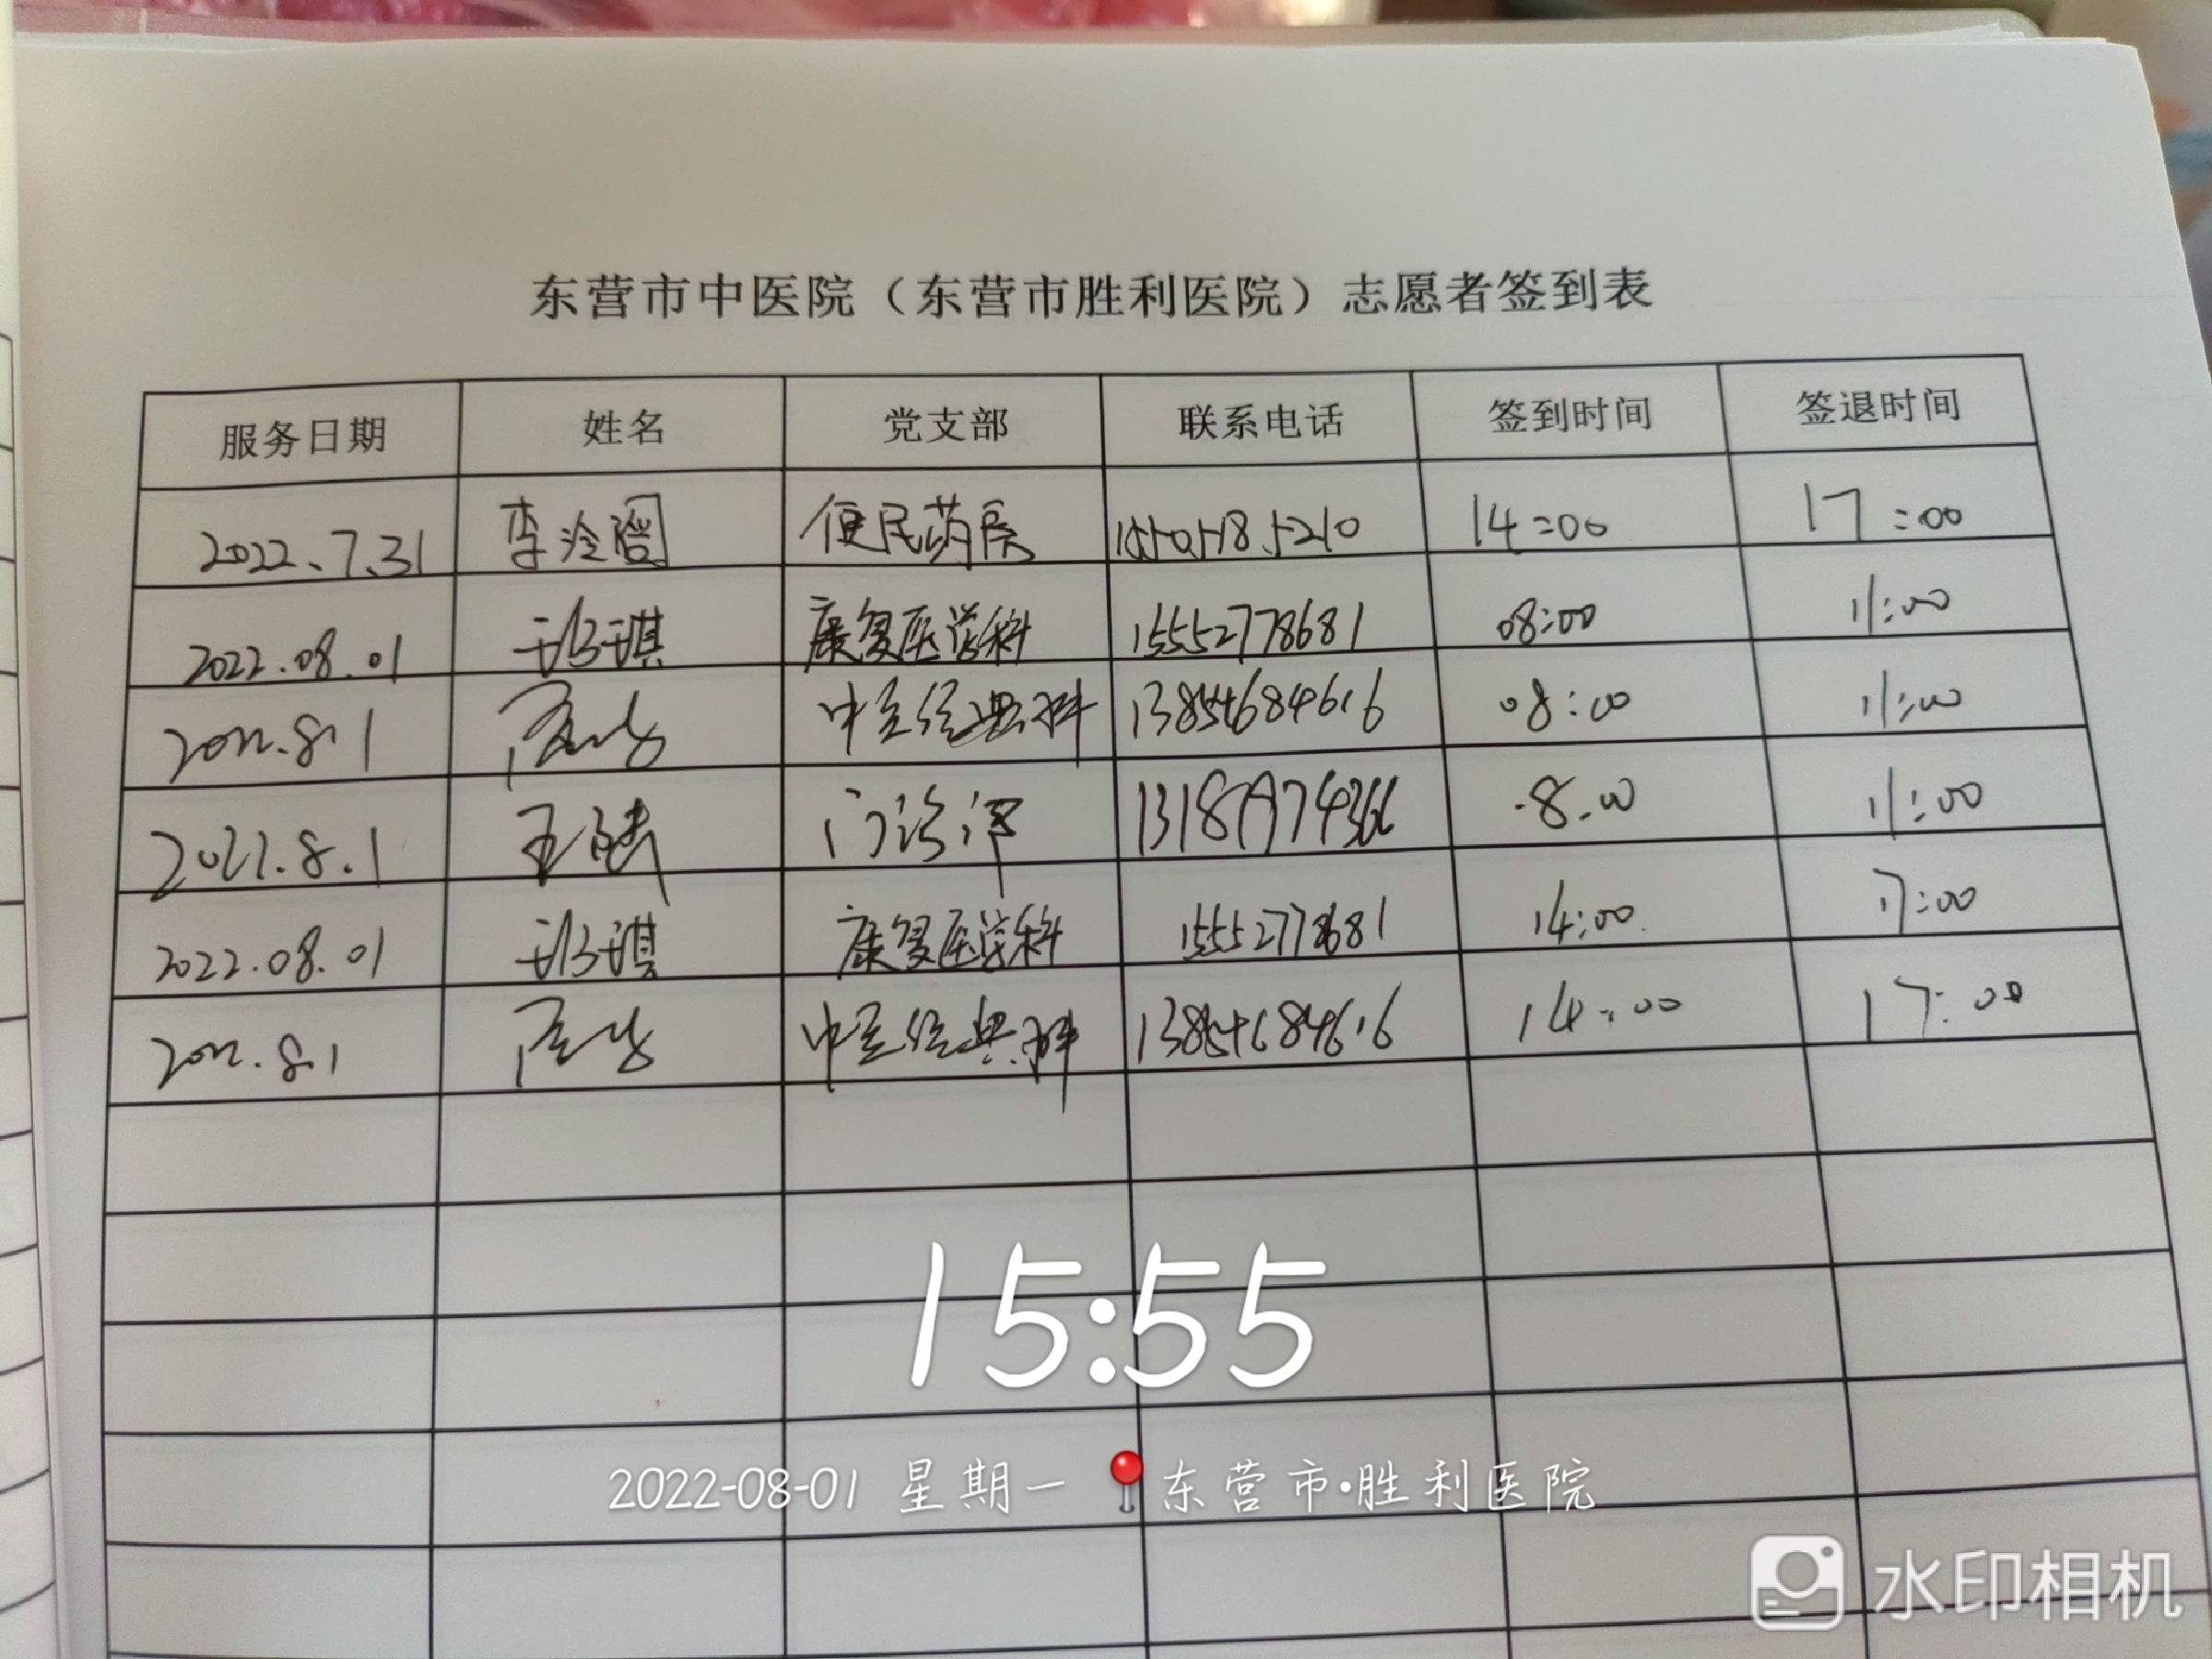 东营市中医院（东营市胜利医院）志愿者签到表
服务日期 姓名 党支部 联系电话 签到时间 签退时间
2022.7.31 李 便民药房 15505185210 14:00 17:00
2022.08.01 琪 康复医学科 15552778681 08:00 11:00
2022.8.1 中医经典科 13854684616 08:00 11:00
2022.8.1 王 门诊 8:00 11:00
2022.08.01 琪 康复医学科 15552778681 14:00 17:00
2022.8.1 中医经典科 13854684616 14:00 17:00
15:55
2022-08-01 星期一 东营市·胜利医院
水印相机